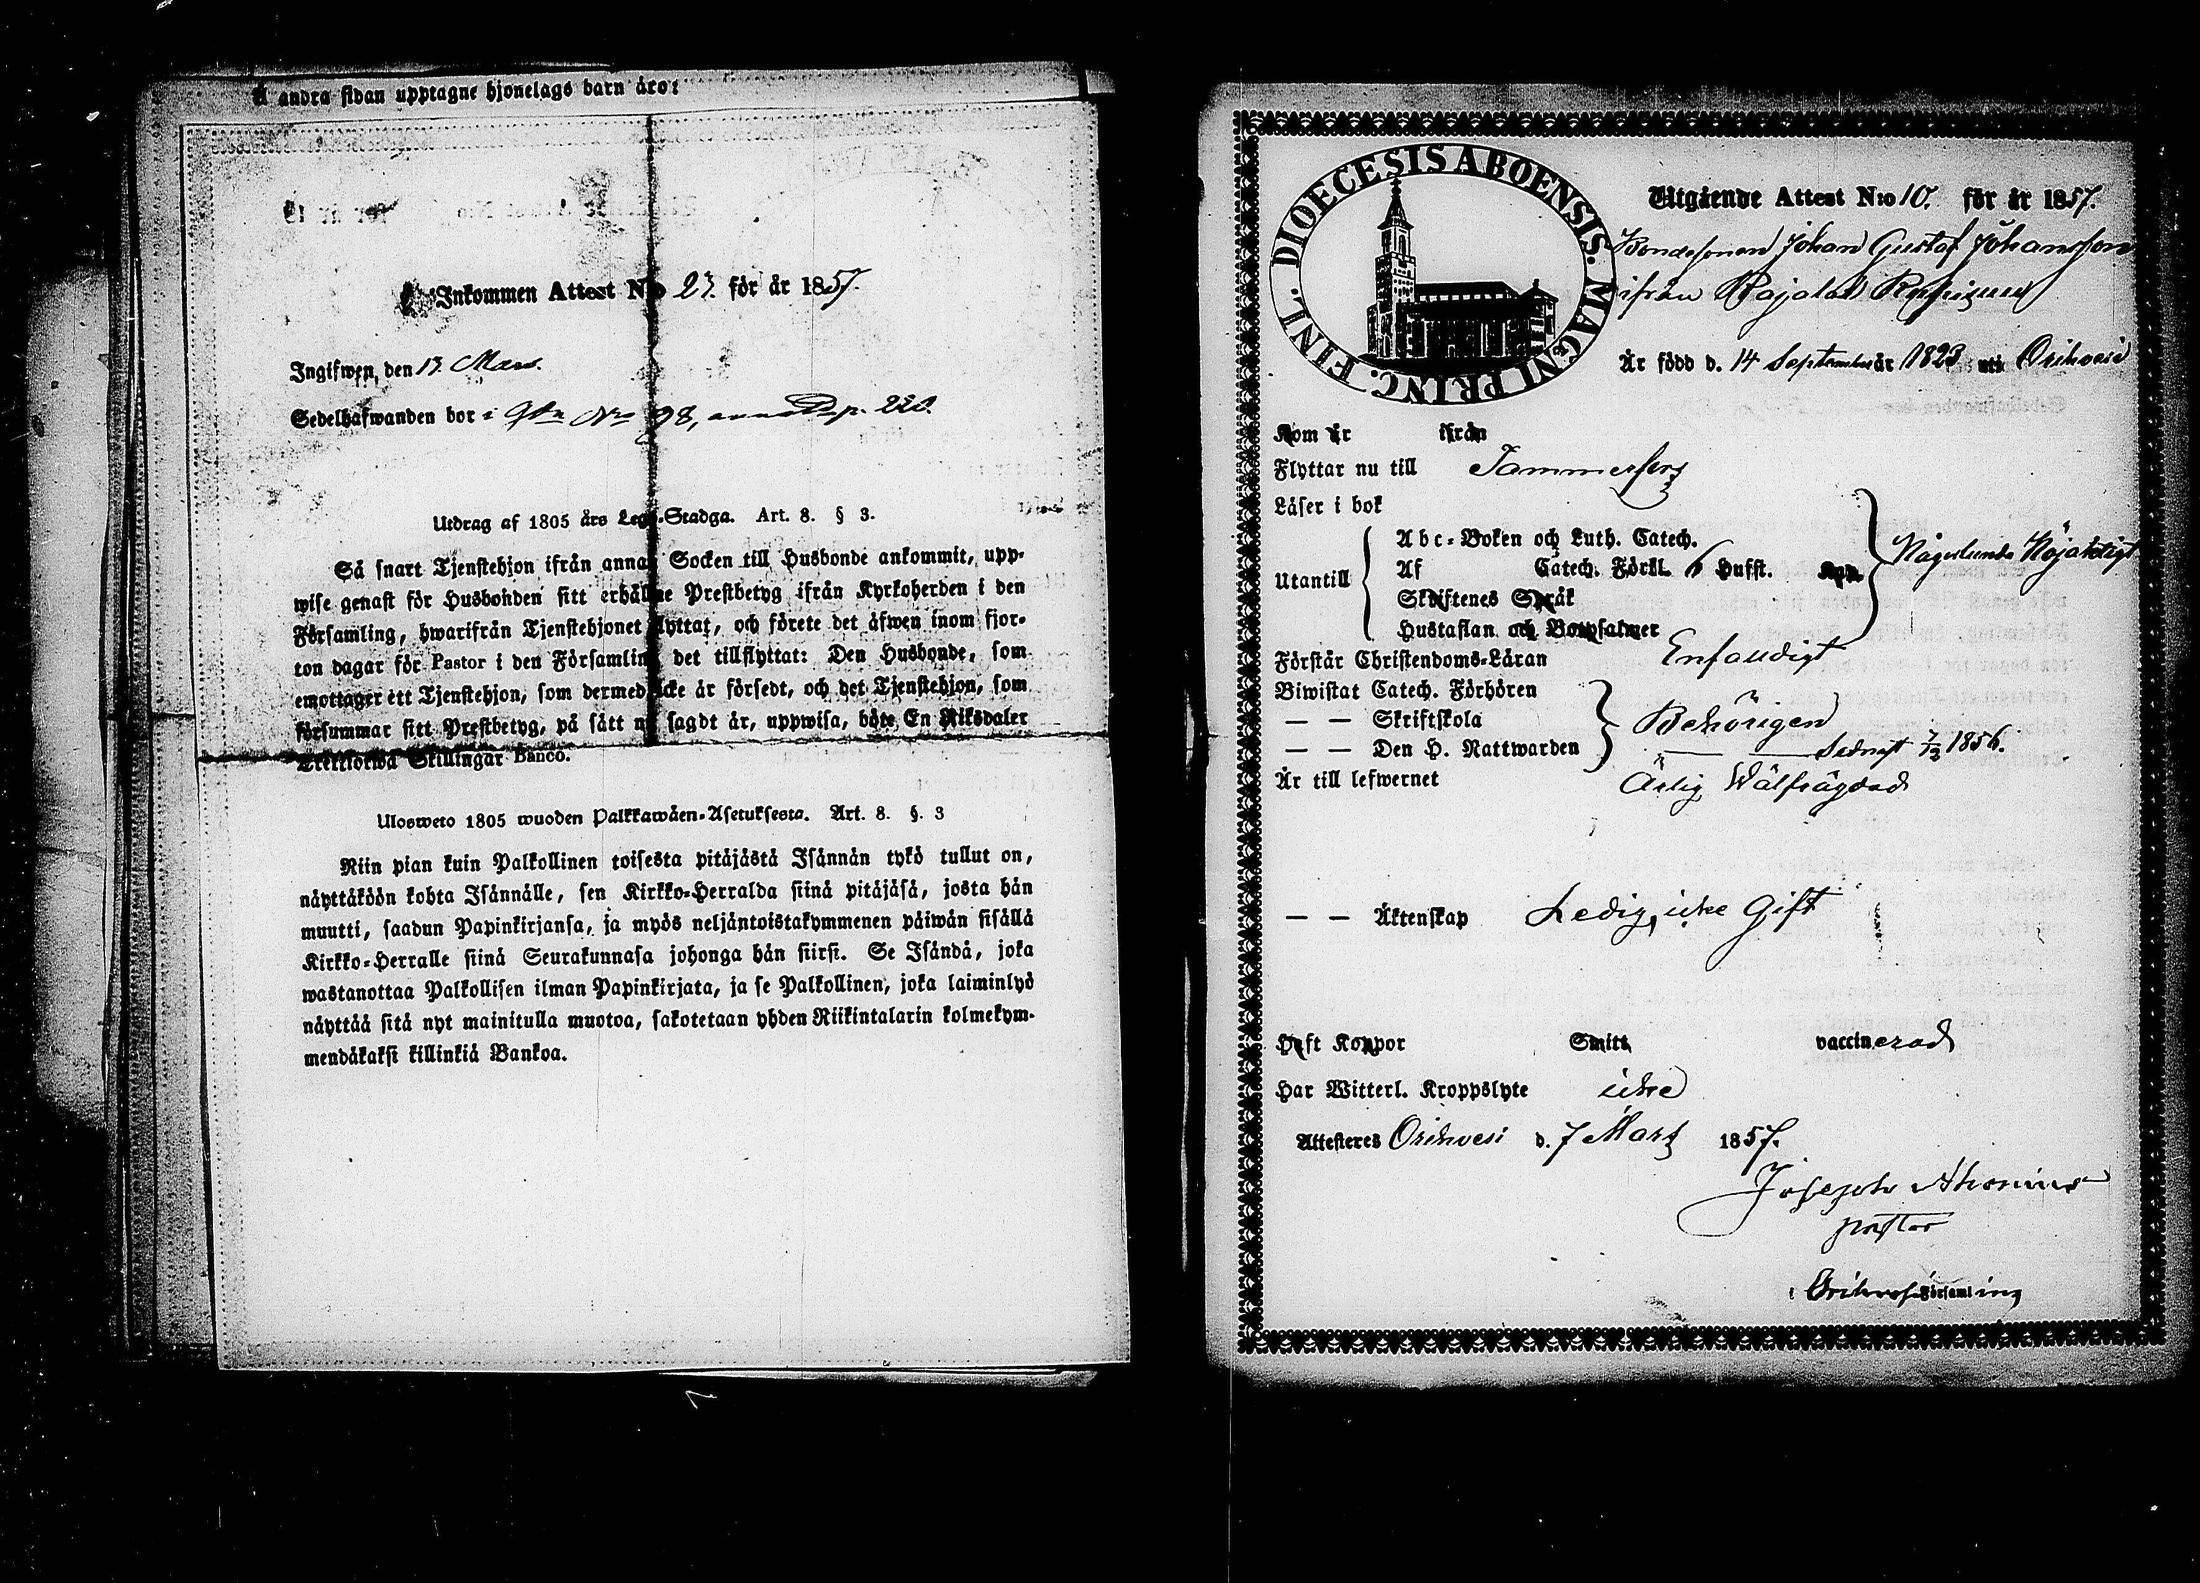 å andra sidan upptagne hjonelags barn äro:
Inkommen Attest No 23. för år 1857.
Ingifwen, den 13 Mars.
Sedelhafwanden bor i Gdn Nro 98, p. 220.
Utdrag af 1805 års Lego-Stadga. Art. 8. § 3.
Så snart Tjenstehjon ifrån annan Socken till Husbonde ankommit, upp-
wise genast för Husbonden sitt erhållne Prestbetyg ifrån Kyrkoherden i den
Församling, hwarifrån Tjenstehjonet flyttat, och förete det äfwen inom fjor-
ton dagar för Pastor i den Församling det tillflyttat: Den Husbonde, som
emottager ett Tjenstehjon, som dermed icke är försedt, och det Tjenstehjon, som
försummar sitt Prestbetyg, på sätt nu sagdt är, uppwisa, böte En Riksdaler
Trettiotwå Skillingar Banco.
Ulosweto 1805 wuoden Palkkawäen-Asetuksesta. Art. 8. §. 3
Niin pian kuin Palkollinen toisesta pitäjästä Isännän tykö tullut on,
näyttäköön kohta Isännälle, sen Kirkko-Herralda siinä pitäjäsä, josta hän
muutti, saadun Papinkirjansa, ja myös neljäntoistakymmenen päiwän sisällä
Kirkko-Herralle siinä Seurakunnasa johonga hän siirsi. Se Isändä, joka
wastanottaa Palkollisen ilman Papinkirjata, ja se Palkollinen, joka laiminlyö
näyttää sitä nyt mainitulla muotoa, sakotetaan yhden Riikintalarin kolmekym-
mendäkaksi killinkiä Bankoa.
DIOECESIS ABOENSIS. MAGNI PRINC. FINL.
Utgående Attest N:o 10. för år 1857.
Bondesonen Johan Gustaf Johansson
ifrån Pajala
Är född d. 14 September år 1823 uti Orihvesi
Kom år ifrån
Flyttar nu till Tammerfors
Läser i bok
Utantill
Abc-Boken och Luth. Catech.
Af Catech. Förkl. 6 Hufst.
Skriftenes Språk
Hustaflan och Botpsalmer
Någorlunda Nöjaktigt
Förstår Christendoms-Läran Enfaldigt
Biwistat Catech. Förhören
— — Skriftskola Behörigen
— — Den H. Nattwarden — Sednast 7/12 1856.
Är till lefwernet Ärlig Wälfrägdad
— — Äktenskap Ledig, icke Gift
Haft Koppor Smitt vaccinerad
Har Witterl. Kroppslyte icke
Attesteres Orihvesi d. 7 Mars 1857.
Joseph
pastor
i Orihvesi Församling